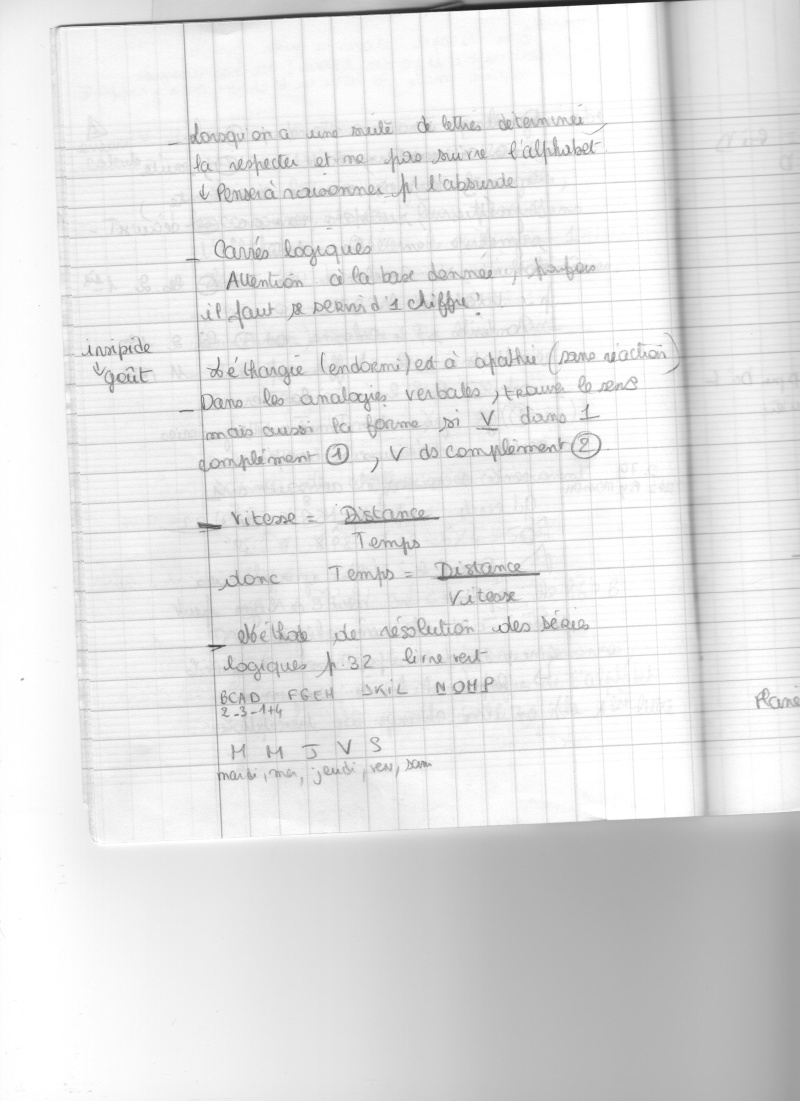 - Lorsqu'on a une suite de lettres determinée
la respecter et ne pas suivre l'alphabet
↓ Penser à raisonner p/ l'absurde
- Carrés logiques
Attention à la base donnée, parfois
il faut se servir d'1 chiffre!
insipide
↓
goût
Léthargie (endormi) est à apathie (sans réaction)
- Dans les analogies verbales, trouver le sens
mais aussi la forme si V dans 1
complément ①, V ds complément ②
- Vitesse = Distance
Temps
donc Temps = Distance
Vitesse
- Méthode de résolution des séries
logiques p 32 livre vert
BCAD FGEH JKIL NOMP
2-3-1+4
M M J V S
mardi, mer, jeudi, ven, sam
Plané